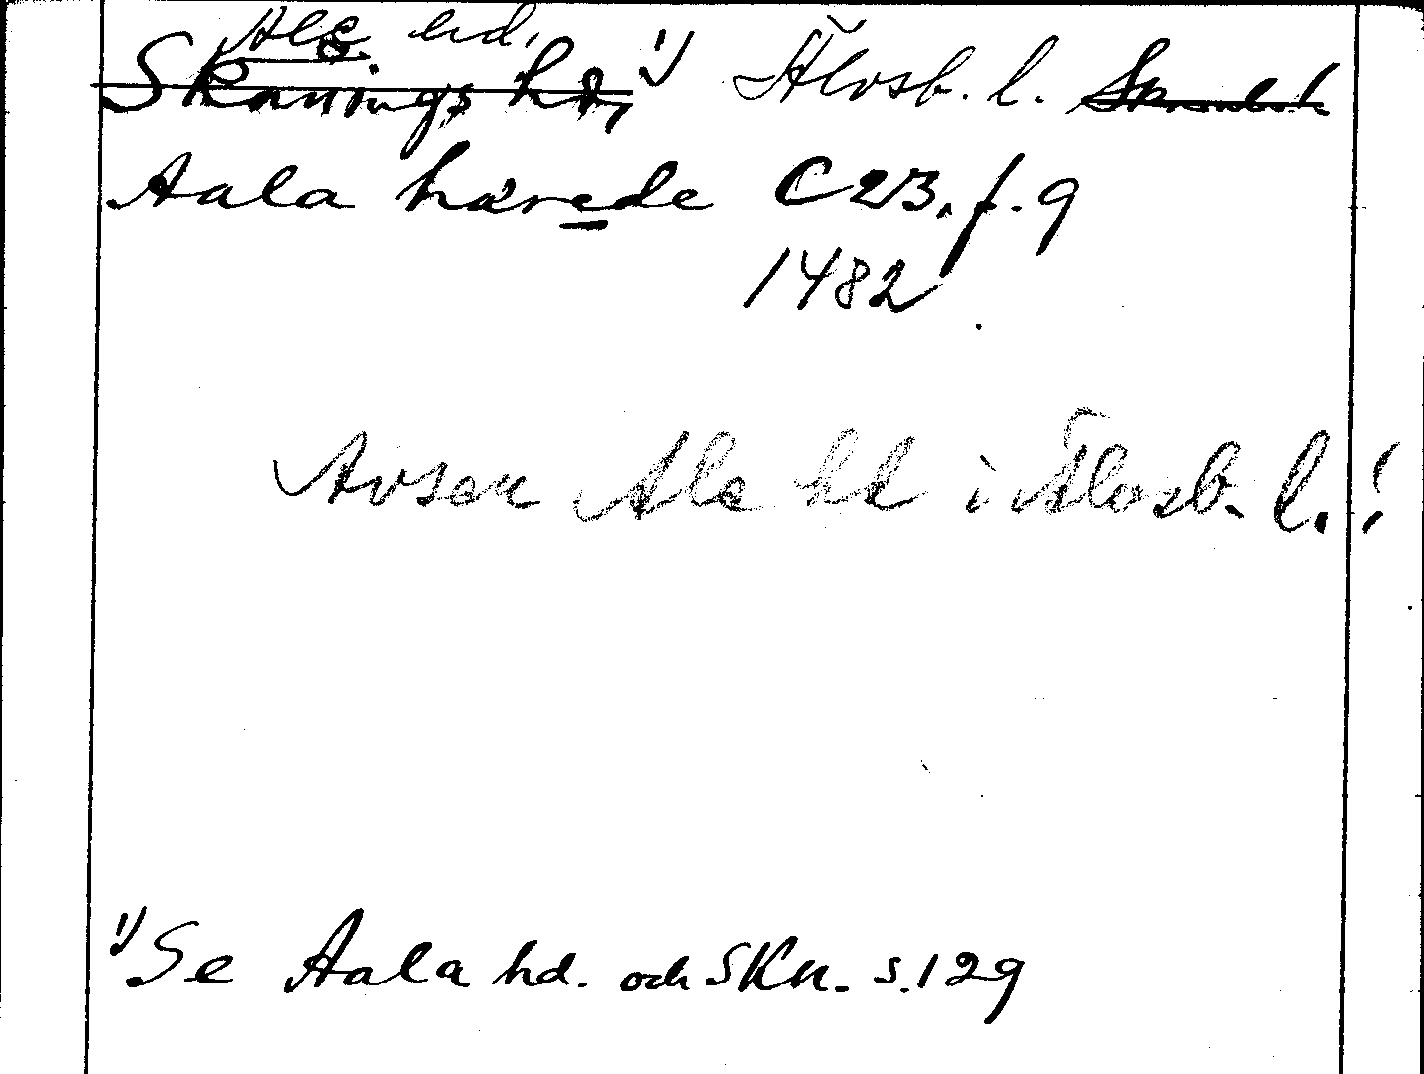 Ale hd.
Skånings hd, 1) Älvsb. l.
Aala härede C23. f. 9
1482
Avser Ale hd i Älvsb. l.!
1) Se Aala hd. och SKn. s.129